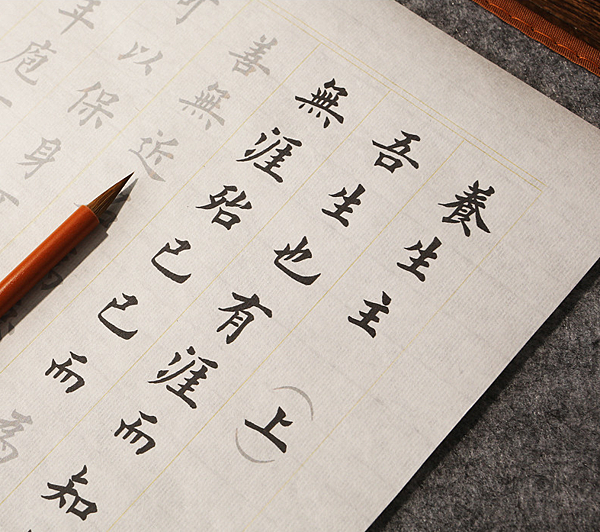 養生主（上）
吾生也有涯而知
無涯殆已已而為
善無近
可以保身可
庖